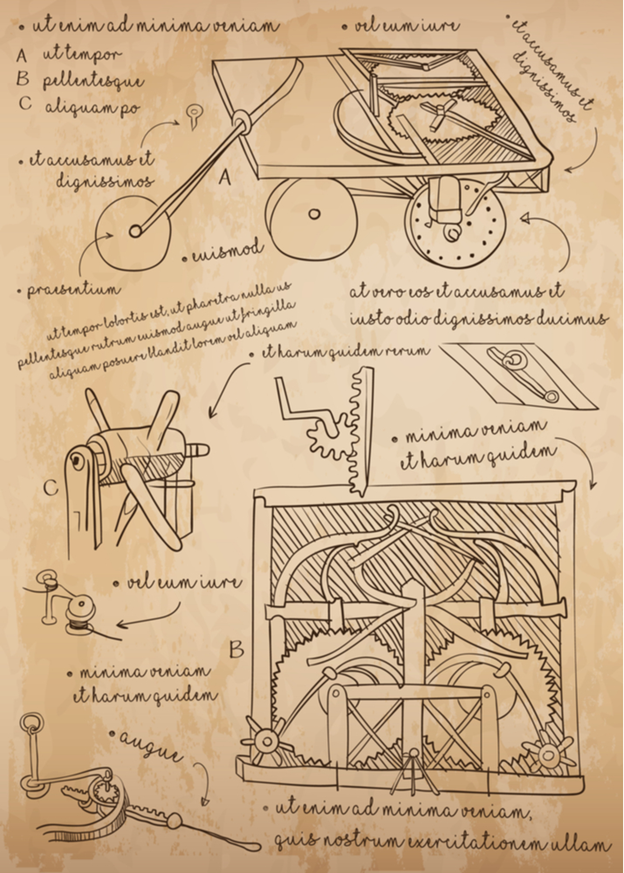 • ut enim ad minima veniam
• vel eum iure
• et accusamus et
dignissimos
A ut tempor
B pellentesque
C aliquam po
• et accusamus et
dignissimos
A
• euismod
• praesentium
at vero eos et accusamus et
iusto odio dignissimos ducimus
ut tempor lobortis est, ut pharetra nulla us
pellentesque rutrum euismod augue ut fringilla
aliquam posuere blandit lorem vel aliquam
• et harum quidem rerum
• minima veniam
et harum quidem
C
• vel eum iure
B
• minima veniam
et harum quidem
• augue
• ut enim ad minima veniam,
quis nostrum exercitationem ullam